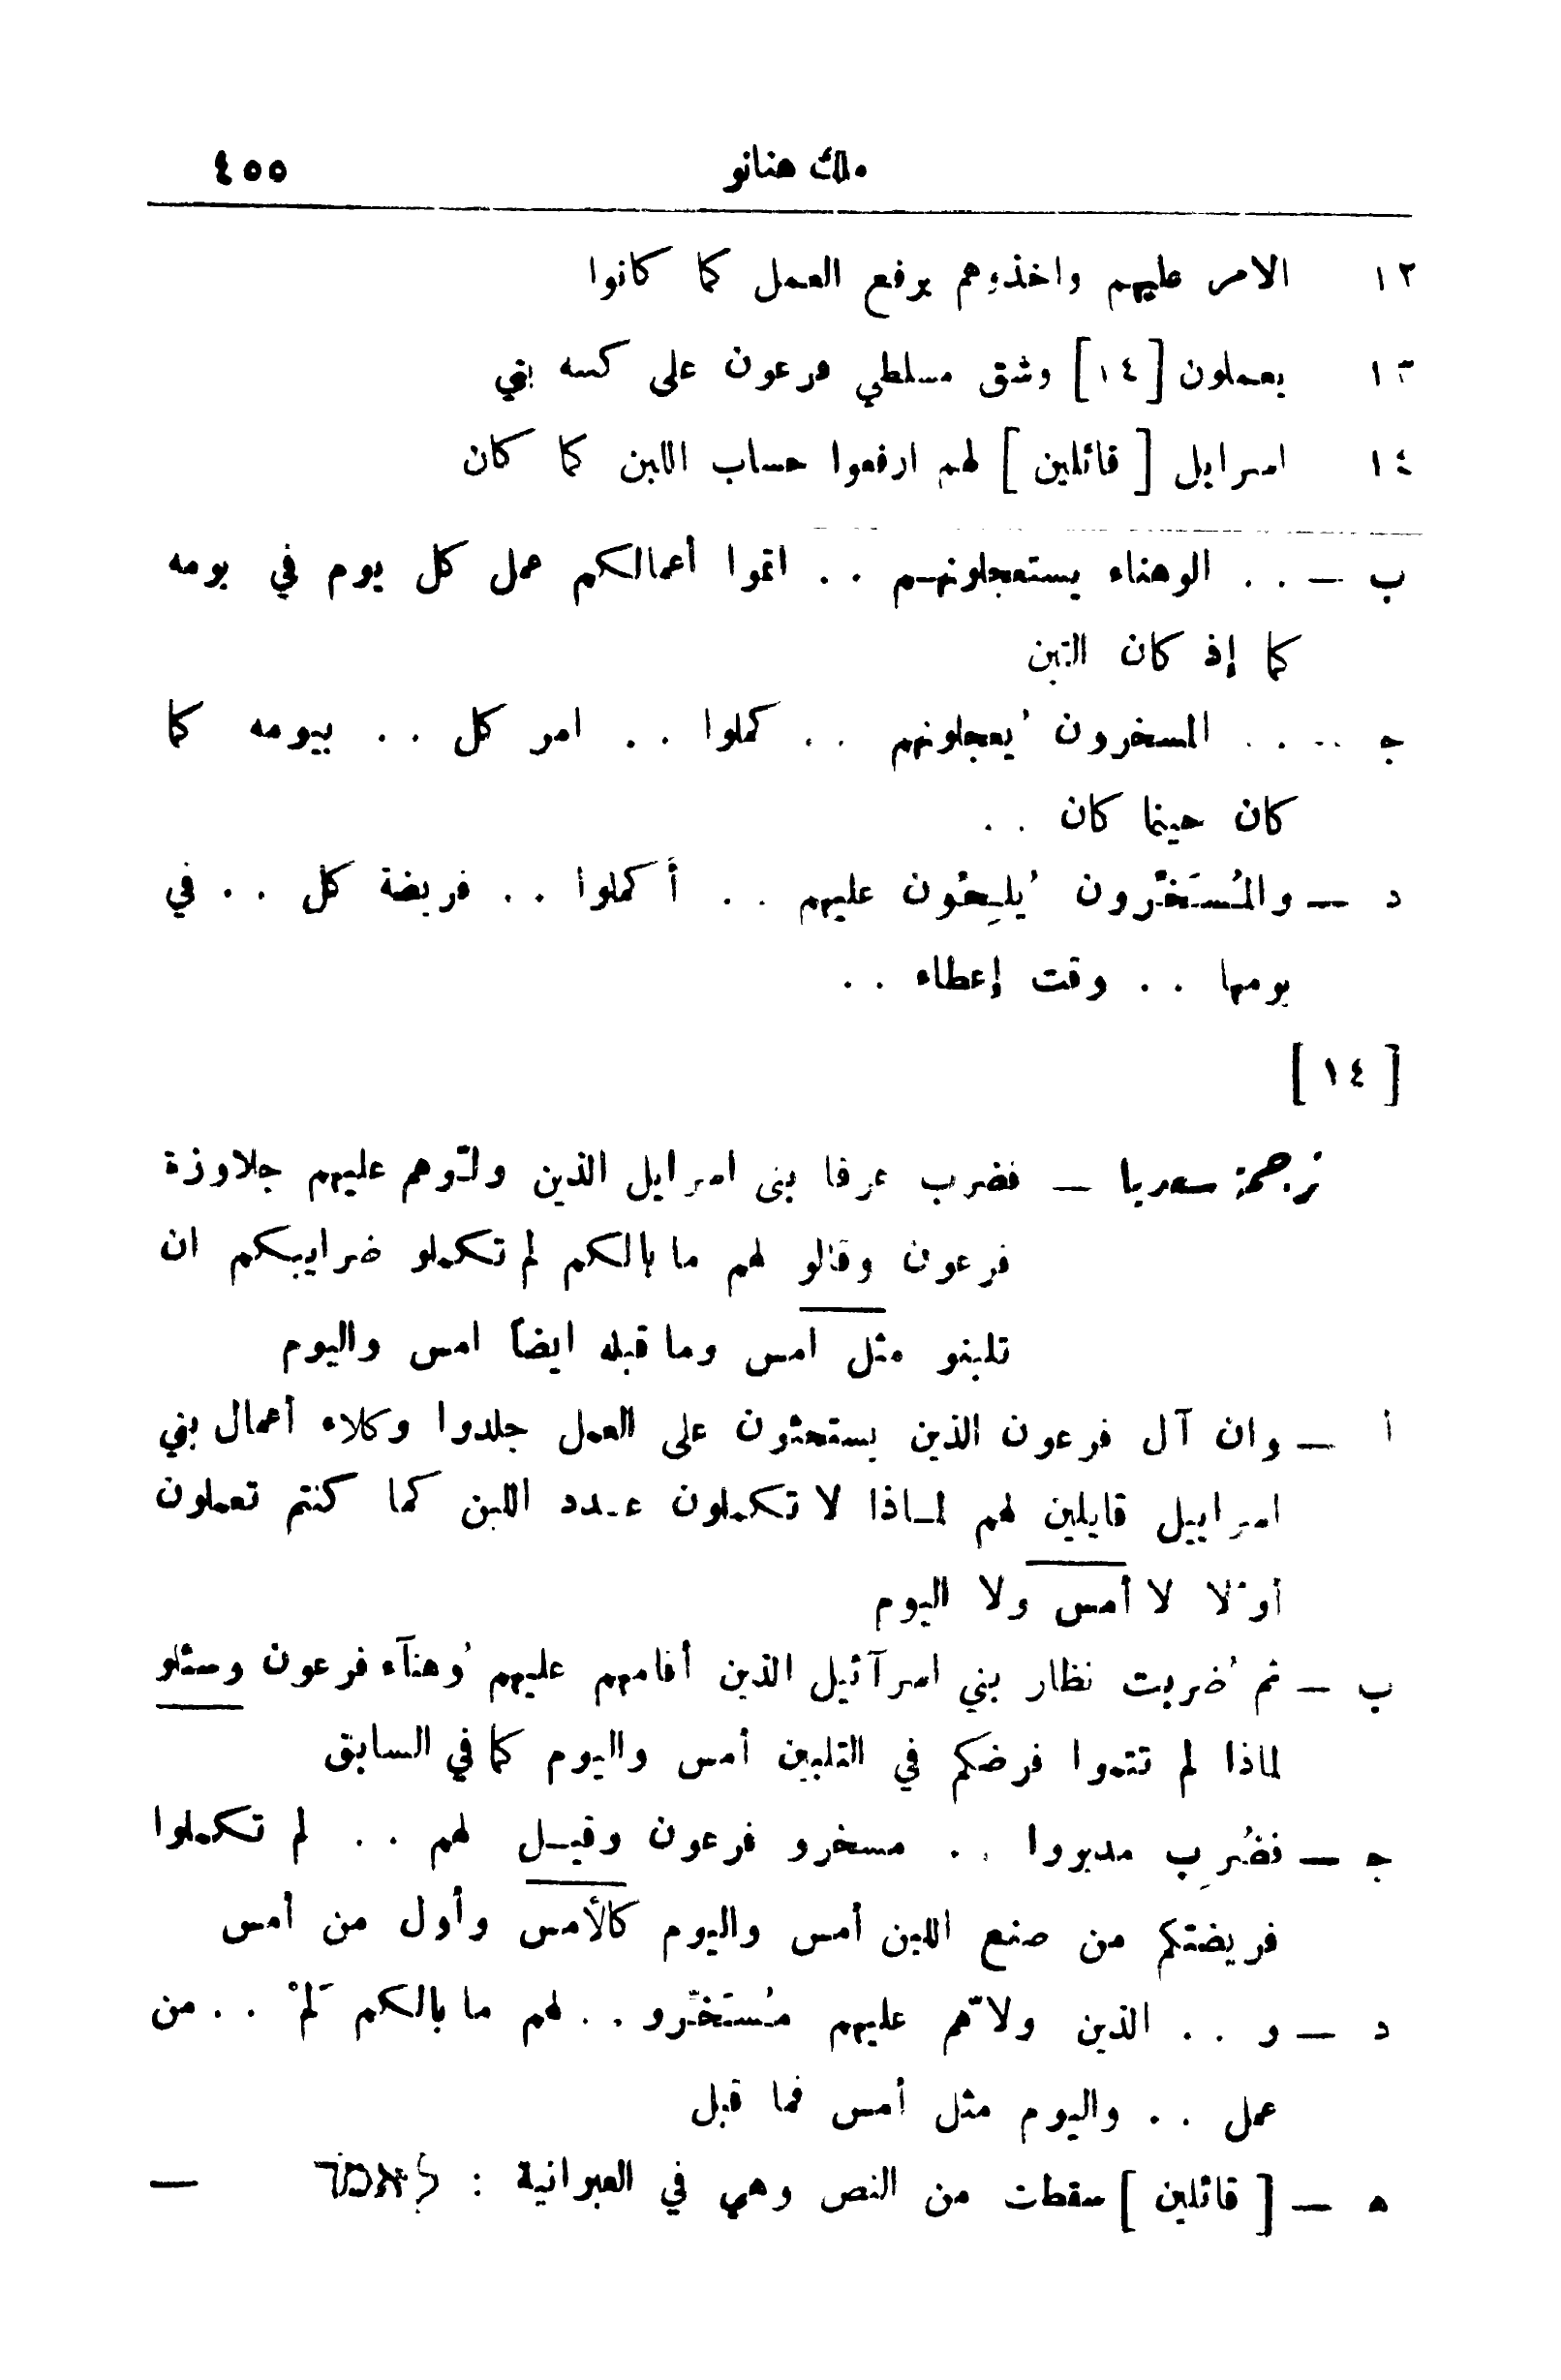 ملك هنانو ٤٥٥
١٢ الامر عليهم واخذوهم برفع العمل كما كانوا
١٣ يعملون [١٤] وشق مسلطي فرعون على كسه بني
١٤ اسرايل [ قائلين ] لهم ارفعوا حساب اللبن كما كان
ب — . . الوهناء يستعجلونهم . . اتموا أعمالكم عمل كل يوم في يومه
كما إذ كان التبن
ج — . . المسخرون يُعجلونهم . . كملوا . . امر كل . . بيومه كما
كان حينما كان . .
د — والمُستَخْرون يُلِحْون عليهم . . أكملوا . . فريضة كل . . في
يومها . . وقت إعطاء . .
[ ١٤ ]
ترجمة سعديا — فضرب عرفا بنى اسرايل الذين ولّوهم عليهم جلاوزة
فرعون وقالو لهم ما بالكم لم تكملو ضرايبكم ان
تلبنو مثل امس وما قبله ايضاً امس واليوم
أ — وان آل فرعون الذين يستحثون على العمل جلدوا وكلاء أعمال بني
اسراييل قايلين لهم لماذا لا تكملون عدد اللبن كما كنتم تعملون
أولا لا أمس ولا اليوم
ب — ثم ضُربت نظار بني اسرآئيل الذين أقامهم عليهم وُهنآء فرعون وسئلو
لماذا لم تتموا فرضكم في التلبين أمس واليوم كما في السابق
ج — فضُرِب مدبروا . . مسخرو فرعون وقيل لهم . . لم تكملوا
فريضتكم من صنع اللبن أمس واليوم كالأمس وأول من أمس
د — و . . الذين ولاّهم عليهم مُستَخّرو . . لهم ما بالكم لَمْ . . من
عمل . . واليوم مثل أمس فما قبل
ه — [ قائلين ] سقطت من النص وهي في العبرانية : לאמר —